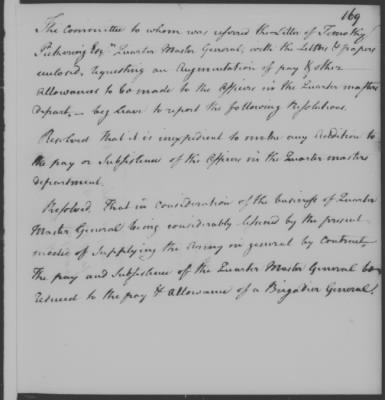 169
The committee to whom was referred the Letter of Timothy
Pickering Esqr Quarter Master General, with the Letters & papers
enclosed, requesting an Augmentation of pay & other
Allowances to be made to the Officers in the Quarter masters
depart, - beg leave to report the following Resolutions.
Resolved that it is inexpedient to make any addition to
the pay or Subsistence of the Officers in the Quarter masters
department.
Resolved, That in consideration of the business of Quarter
Master General being considerably lessened by the present
mode of Supplying the Army in general by Contract
The pay and Subsistence of the Quarter Master General be
reduced to the pay & allowance of a Brigadier General.